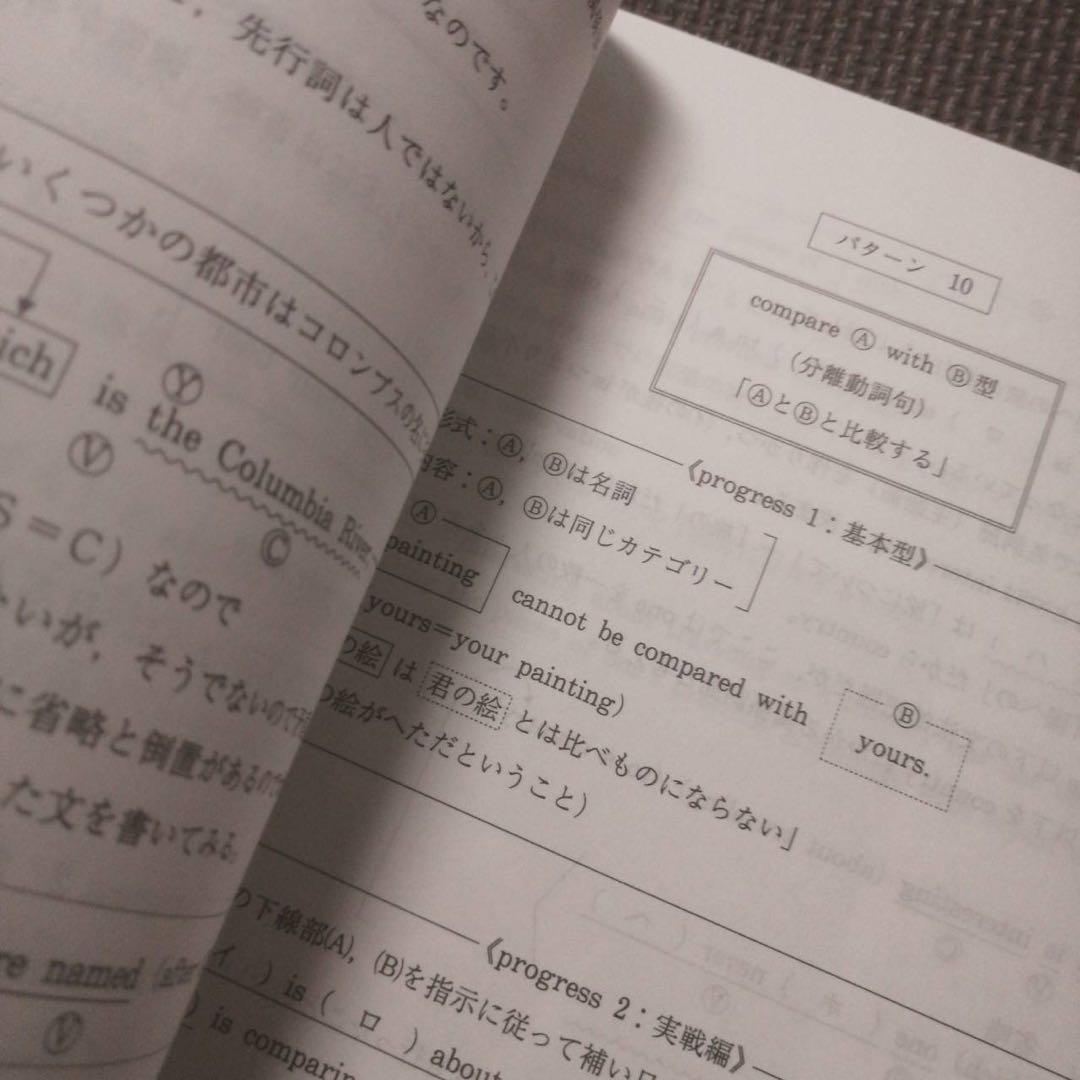 なのです。
先行詞は人ではないから、
いくつかの都市はコロンブスの
ich is the Columbia River
Ⓥ
Ⓥ
Ⓒ
S＝C）なので
いが，そうでないので
に省略と倒置があるので
た文を書いてみる。
re named (after
Ⓥ
パターン 10
compare Ⓐ with Ⓑ型
（分離動詞句）
「ⒶとⒷと比較する」
《progress 1：基本型》
形式：Ⓐ，Ⓑは名詞
内容：Ⓐ，Ⓑは同じカテゴリー
Ⓐ
painting cannot be compared with yours.
Ⓑ
yours＝your painting）
の絵 は 君の絵 とは比べものにならない」
の絵がへただということ）
《progress 2：実戦編》
の下線部(A)，(B)を指示に従って補い
イ ) is ( ロ ) about
) is comparing